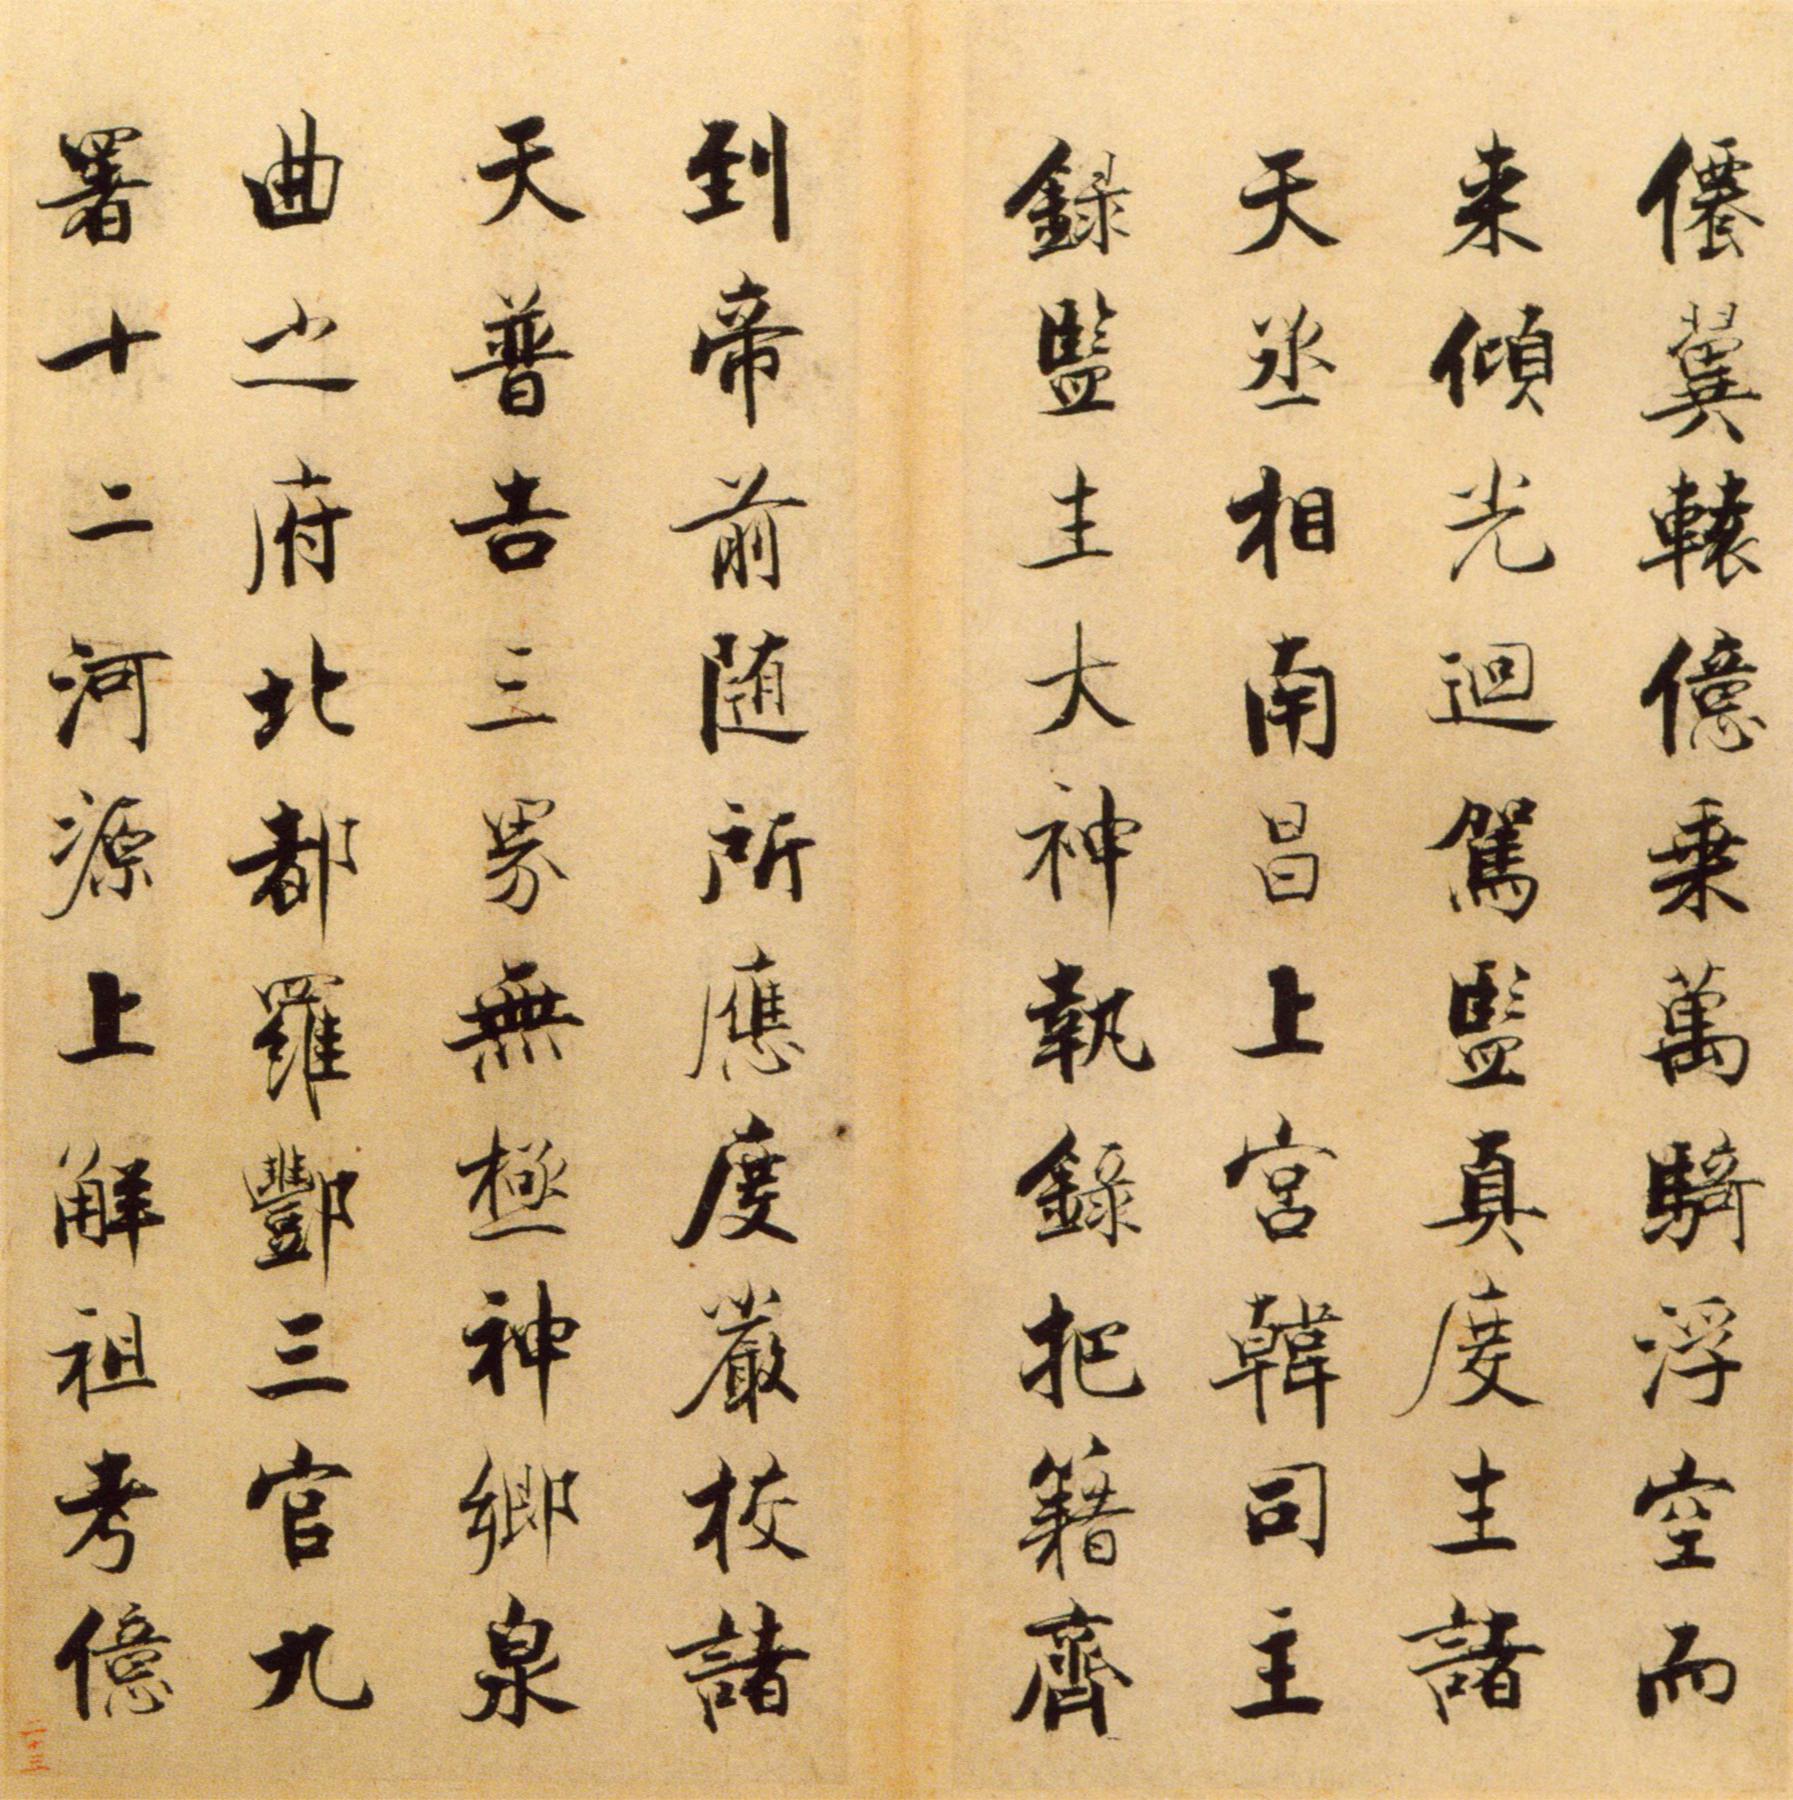 僊翼轅億乗萬騎浮空而
来傾光迴駕監真度主諸
天丞相南昌上宮韓司主
録監主大神執錄把籍齊
到帝前随所應度嚴校諸
天普告三界無極神鄉泉
曲之府北都羅酆三官九
署十二河源上解祖考億
二十三